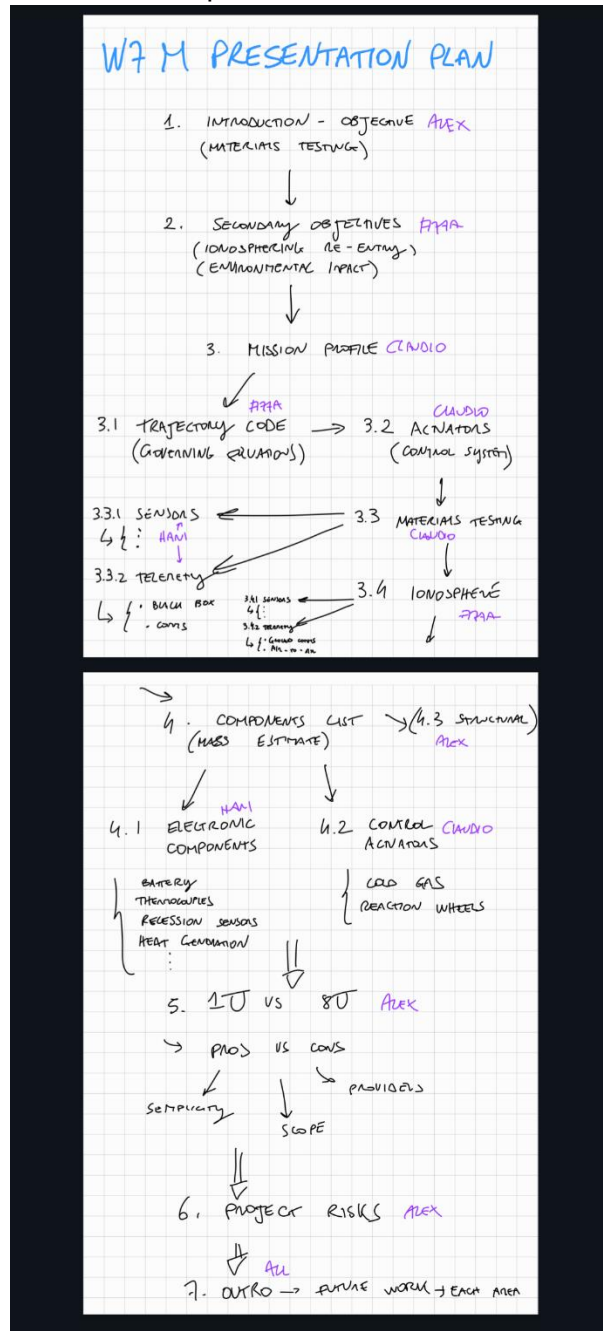 W7 M PRESENTATION PLAN
1. INTRODUCTION - OBJECTIVE ALEX
(MATERIALS TESTING)
2. SECONDARY OBJECTIVES
(IONOSPHERING RE-ENTRY)
(ENVIRONMENTAL IMPACT)
3. MISSION PROFILE CLAUDIO
3.1 TRAJECTORY CODE
(GOVERNING EQUATIONS)
CLAUDIO
3.2 ACTUATORS
(CONTROL SYSTEM)
3.3.1 SENSORS
HANI
3.3 MATERIALS TESTING
CLAUDIO
3.3.2 TELEMETRY
· BLACK BOX
· COMMS
3.4 IONOSPHERE
3.4.1 SENSORS
3.4.2 TELEMETRY
· GROUND COMMS
· AIR-TO-AIR
4. COMPONENTS LIST (4.3 STRUCTURAL)
(MASS ESTIMATE) ALEX
HANI
4.1 ELECTRONIC
COMPONENTS
BATTERY
THERMOCOUPLES
RECESSION SENSORS
HEAT GENERATION
4.2 CONTROL CLAUDIO
ACTUATORS
COLD GAS
REACTION WHEELS
5. 1U VS 8U ALEX
PROS VS CONS
SEMPLICITY
SCOPE
PROVIDERS
6. PROJECT RISKS ALEX
ALL
7. OUTRO → FUTURE WORK → EACH AREA